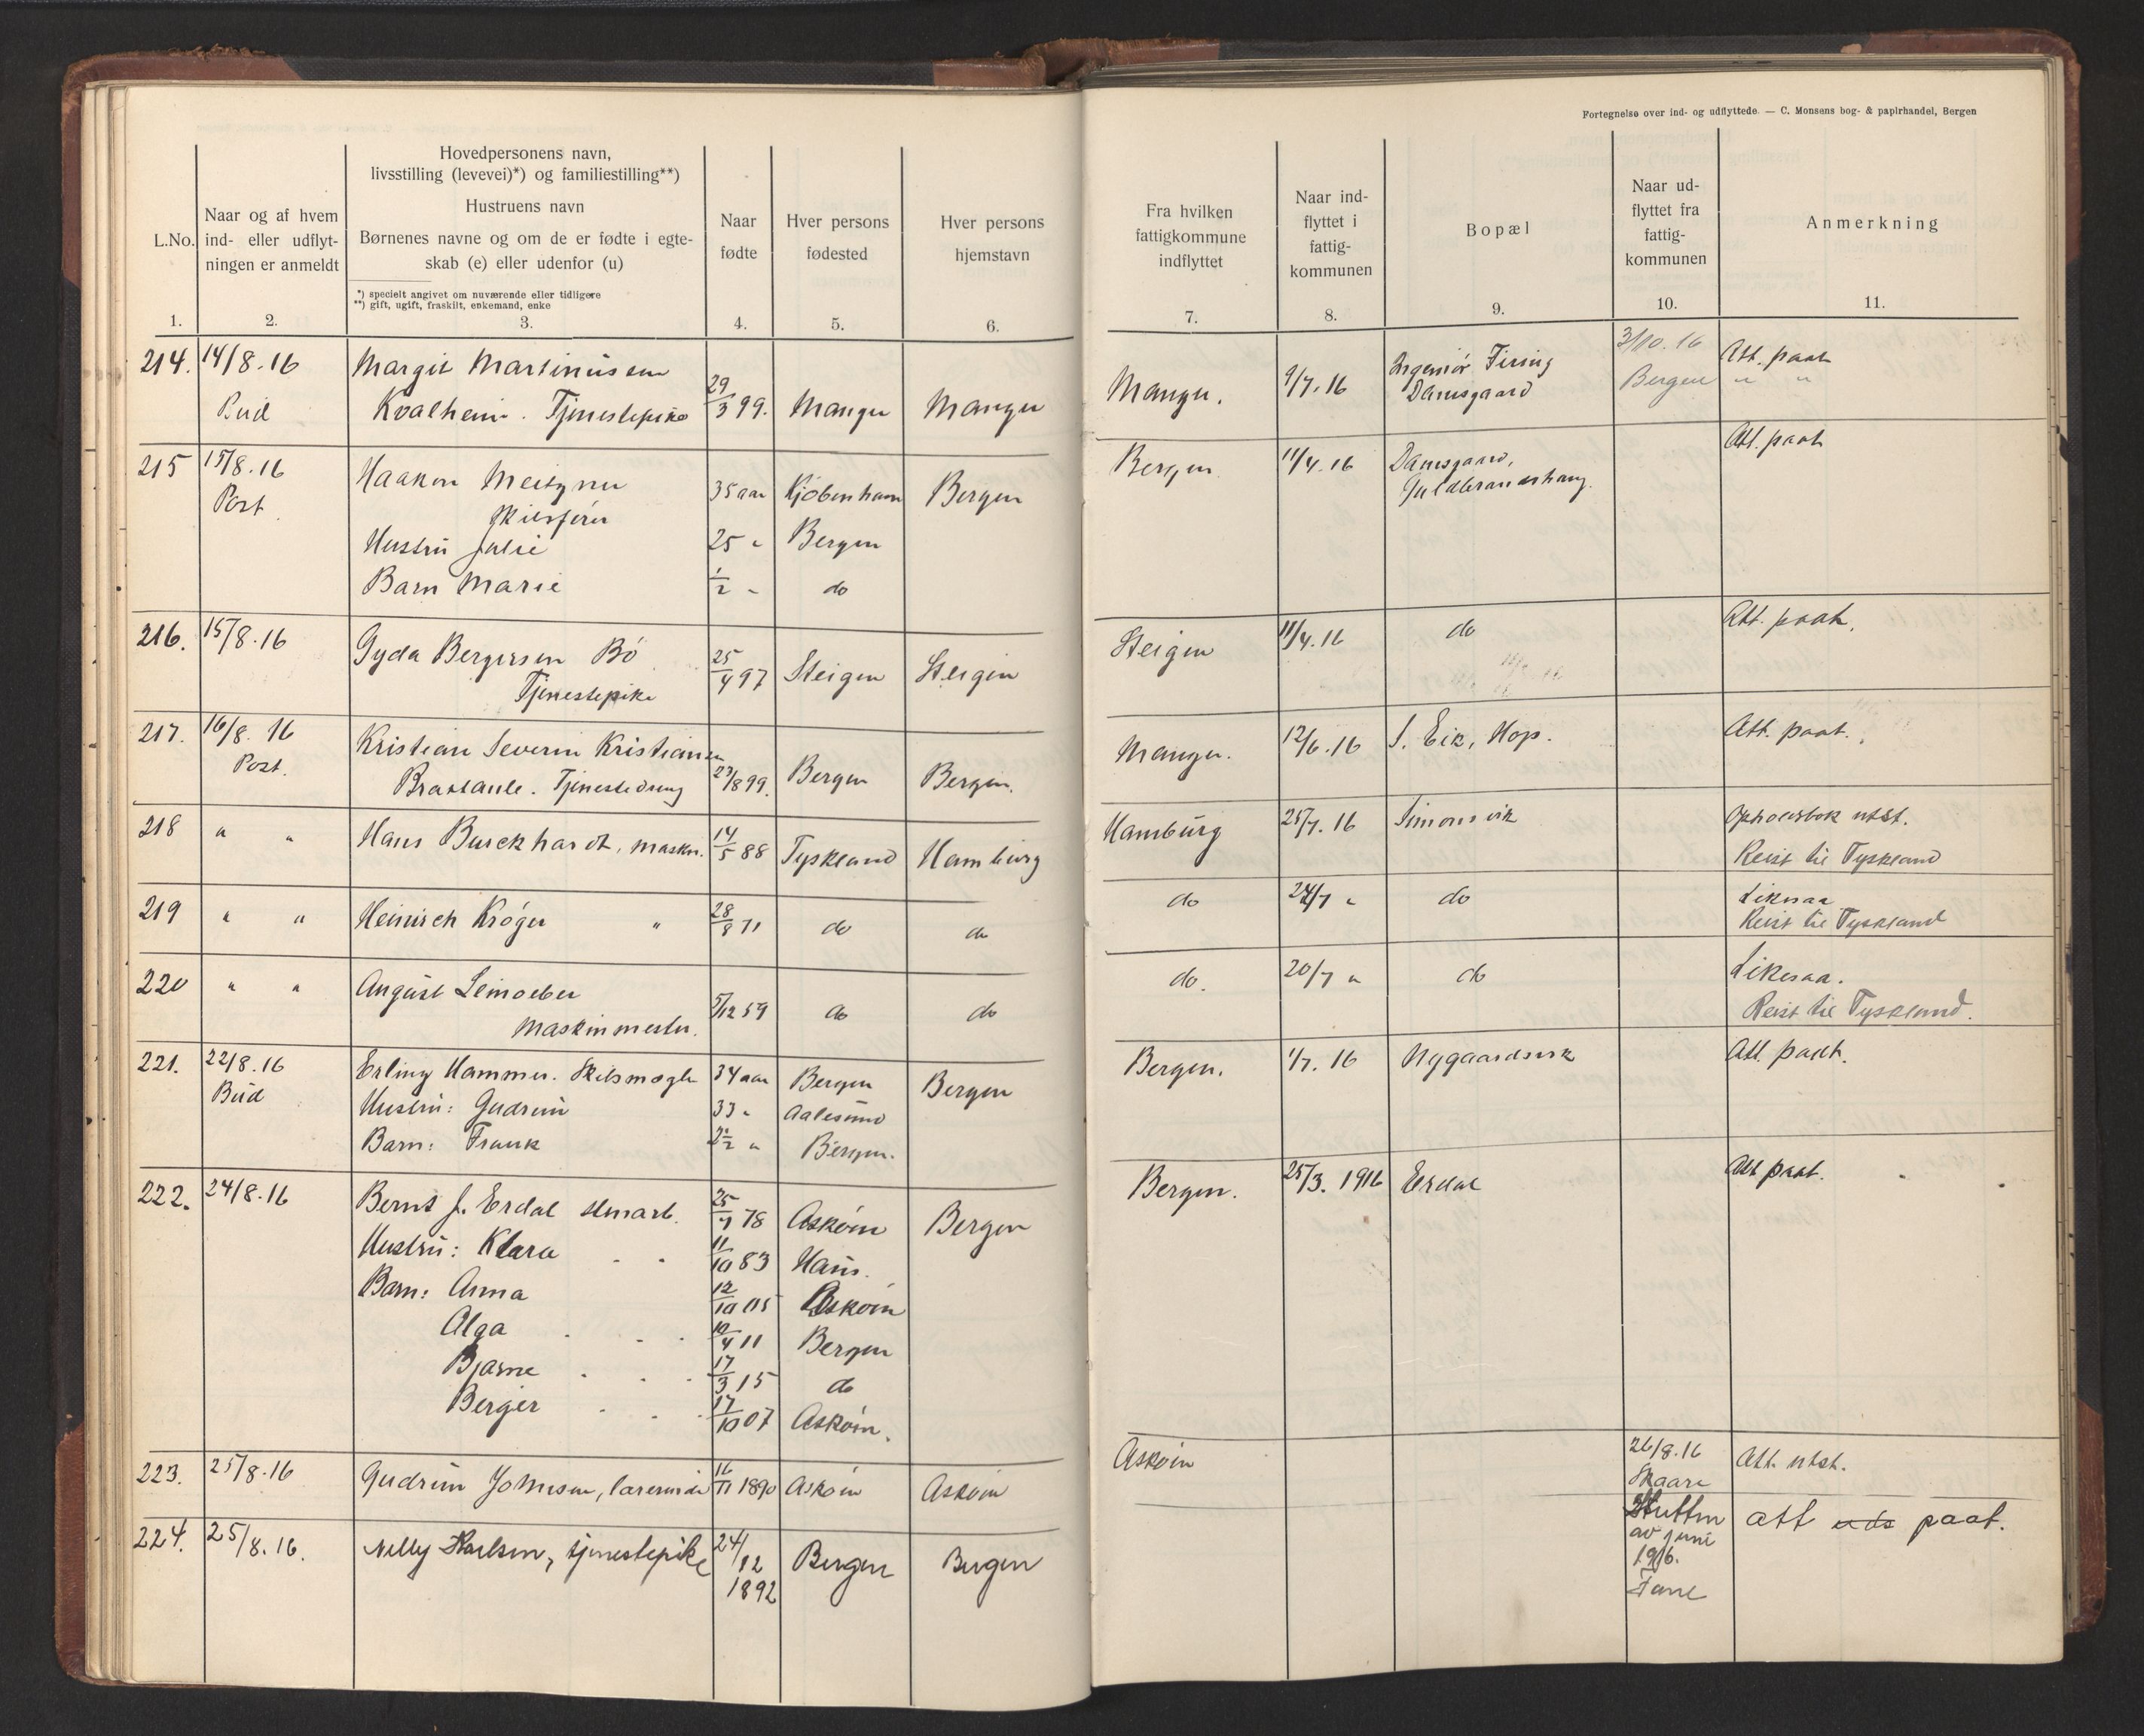 Fortegnelse over ind- og udflyttede. — C. Monsens bog- & papirhandel, Bergen
L.No.
1.
Naar og af hvem
ind- eller udflyt-
ningen er anmeldt
2.
Hovedpersonens navn,
livsstilling (levevei)*) og familiestilling**)
Hustruens navn
Børnenes navne og om de er fødte i egte-
skab (e) eller udenfor (u)
*) specielt angivet om nuværende eller tidligere
**) gift, ugift, fraskilt, enkemand, enke
3.
Naar
fødte
4.
Hver persons
fødested
5.
Hver persons
hjemstavn
6.
Fra hvilken
fattigkommune
indflyttet
7.
Naar ind-
flyttet i
fattig-
kommunen
8.
Bopæl
9.
Naar ud-
flyttet fra
fattig-
kommunen
10.
Anmerkning
11.
214. 14/8.16 Margit Martinussen 3/10.16 Att. paat
Bud Kvalheim. Tjenestepike 29/3 99. Manger Manger Manger. 9/7.16 Ingeniør Firing Damsgaard Bergen " "
215 15/8.16 Haakon 35 aar Kjøbenhavn Bergen Bergen 11/4.16 Damsgaard, Att. paat
Post
Hustru Julie 25 " Bergen
Barn Marie 1/2 " do
216. 15/8.16 Gyda Bergersen Bø 25/4 97 Steigen Steigen Steigen 11/4.16 do Att. paat.
Tjenestepike
217. 16/8.16 Kristian Severin Kristiansen Manger. 12/6.16 S. Eik, Hop. Att. paat.
Post. Tjenestedreng 23/8 99. Bergen Bergen.
218 " " Hans Burckhardt, maskn. 14/5 88 Tyskland Hamburg Hamburg 25/7.16 Simonsvik Opholdsbok utst.
Reist til Tyskland
219 " " Heinrich Krøger " 28/8 71 do do do 24/7 " do Likesaa
Reist til Tyskland
220 " " August 5/12 59 do do do. 20/7 " do Likesaa.
Maskinmester. Reist til Tyskland.
221. 22/8.16 Erling Hammer. Skibsmægler 34 aar Bergen Bergen Bergen. 1/7.16 Nygaardsvik Att. paat.
Bud Hustru: Gudrun 33 " Aalesund
Barn: Frank 2 1/2 " Bergen.
222. 24/8.16 Bernt J. Erdal 25/7 78 Askøen Bergen Bergen. 25/3.1916 Erdal Att paat.
Hustru: Klara 11/10 83 Haus.
Barn: Anna 12/10 05 Askøen
Olga 10/4 11 Bergen
Bjarne 17/3 15 do
Berger 17/10 07 Askøen.
223. 25/8.16 Gudrun Johnsen, lærerinde 16/11 1890 Askøen Askøen Askøen 26/8.16 Att. utst.
Skaare
224. 25/8.16. Nelly Karlsen, tjenestepike 24/12 1892 Bergen Bergen Slutten att uds paat.
av juni
1916.
Fane